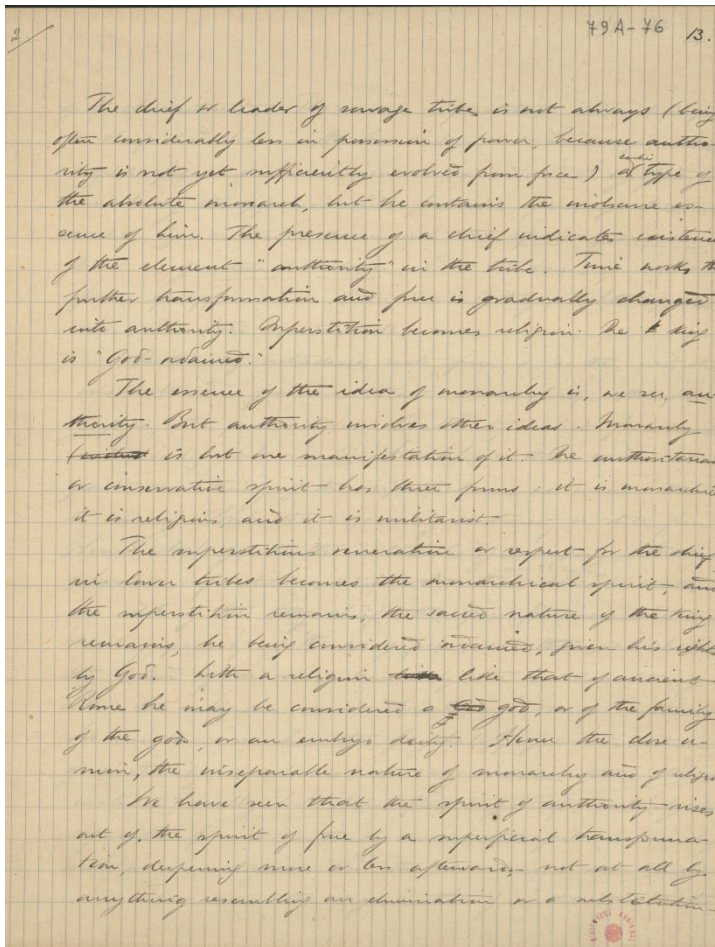 2
79A-76 13.
The chief or leader of savage tribes is not always (being
often considerably less in possession of power, because autho-
rity is not yet sufficiently evolved from force) a type of
the absolute monarch, but he contains the
sence of him. The presence of a chief indicates existence
of the element "authority" in the tribe. Time works the
further transformation and force is gradually changed
into authority. Superstition becomes religion. The king
is "God-ordained."
The essence of the idea of monarchy is, we see, au-
thority. But authority involves other ideas. Monarchy
is but one manifestation of it. The authoritarian
or conservative spirit has three forms: it is monarchic
it is religious and it is militarist.
The superstitious veneration or respect for the chief
in lower tribes becomes the monarchical spirit, and
the superstition remains, the sacred nature of the king
remains, he being considered ordained, given his rights
by God. With a religion like that of ancient
Rome he may be considered a god, or of the family
of the gods, or an embryo deity. Hence the close u-
nion, the inseparable nature of monarchy and of religion
We have seen that the spirit of authority rises
out of the spirit of force by a superficial transforma-
tion, deepening more or less afterwards, not at all by
anything resembling an elimination or a substitution